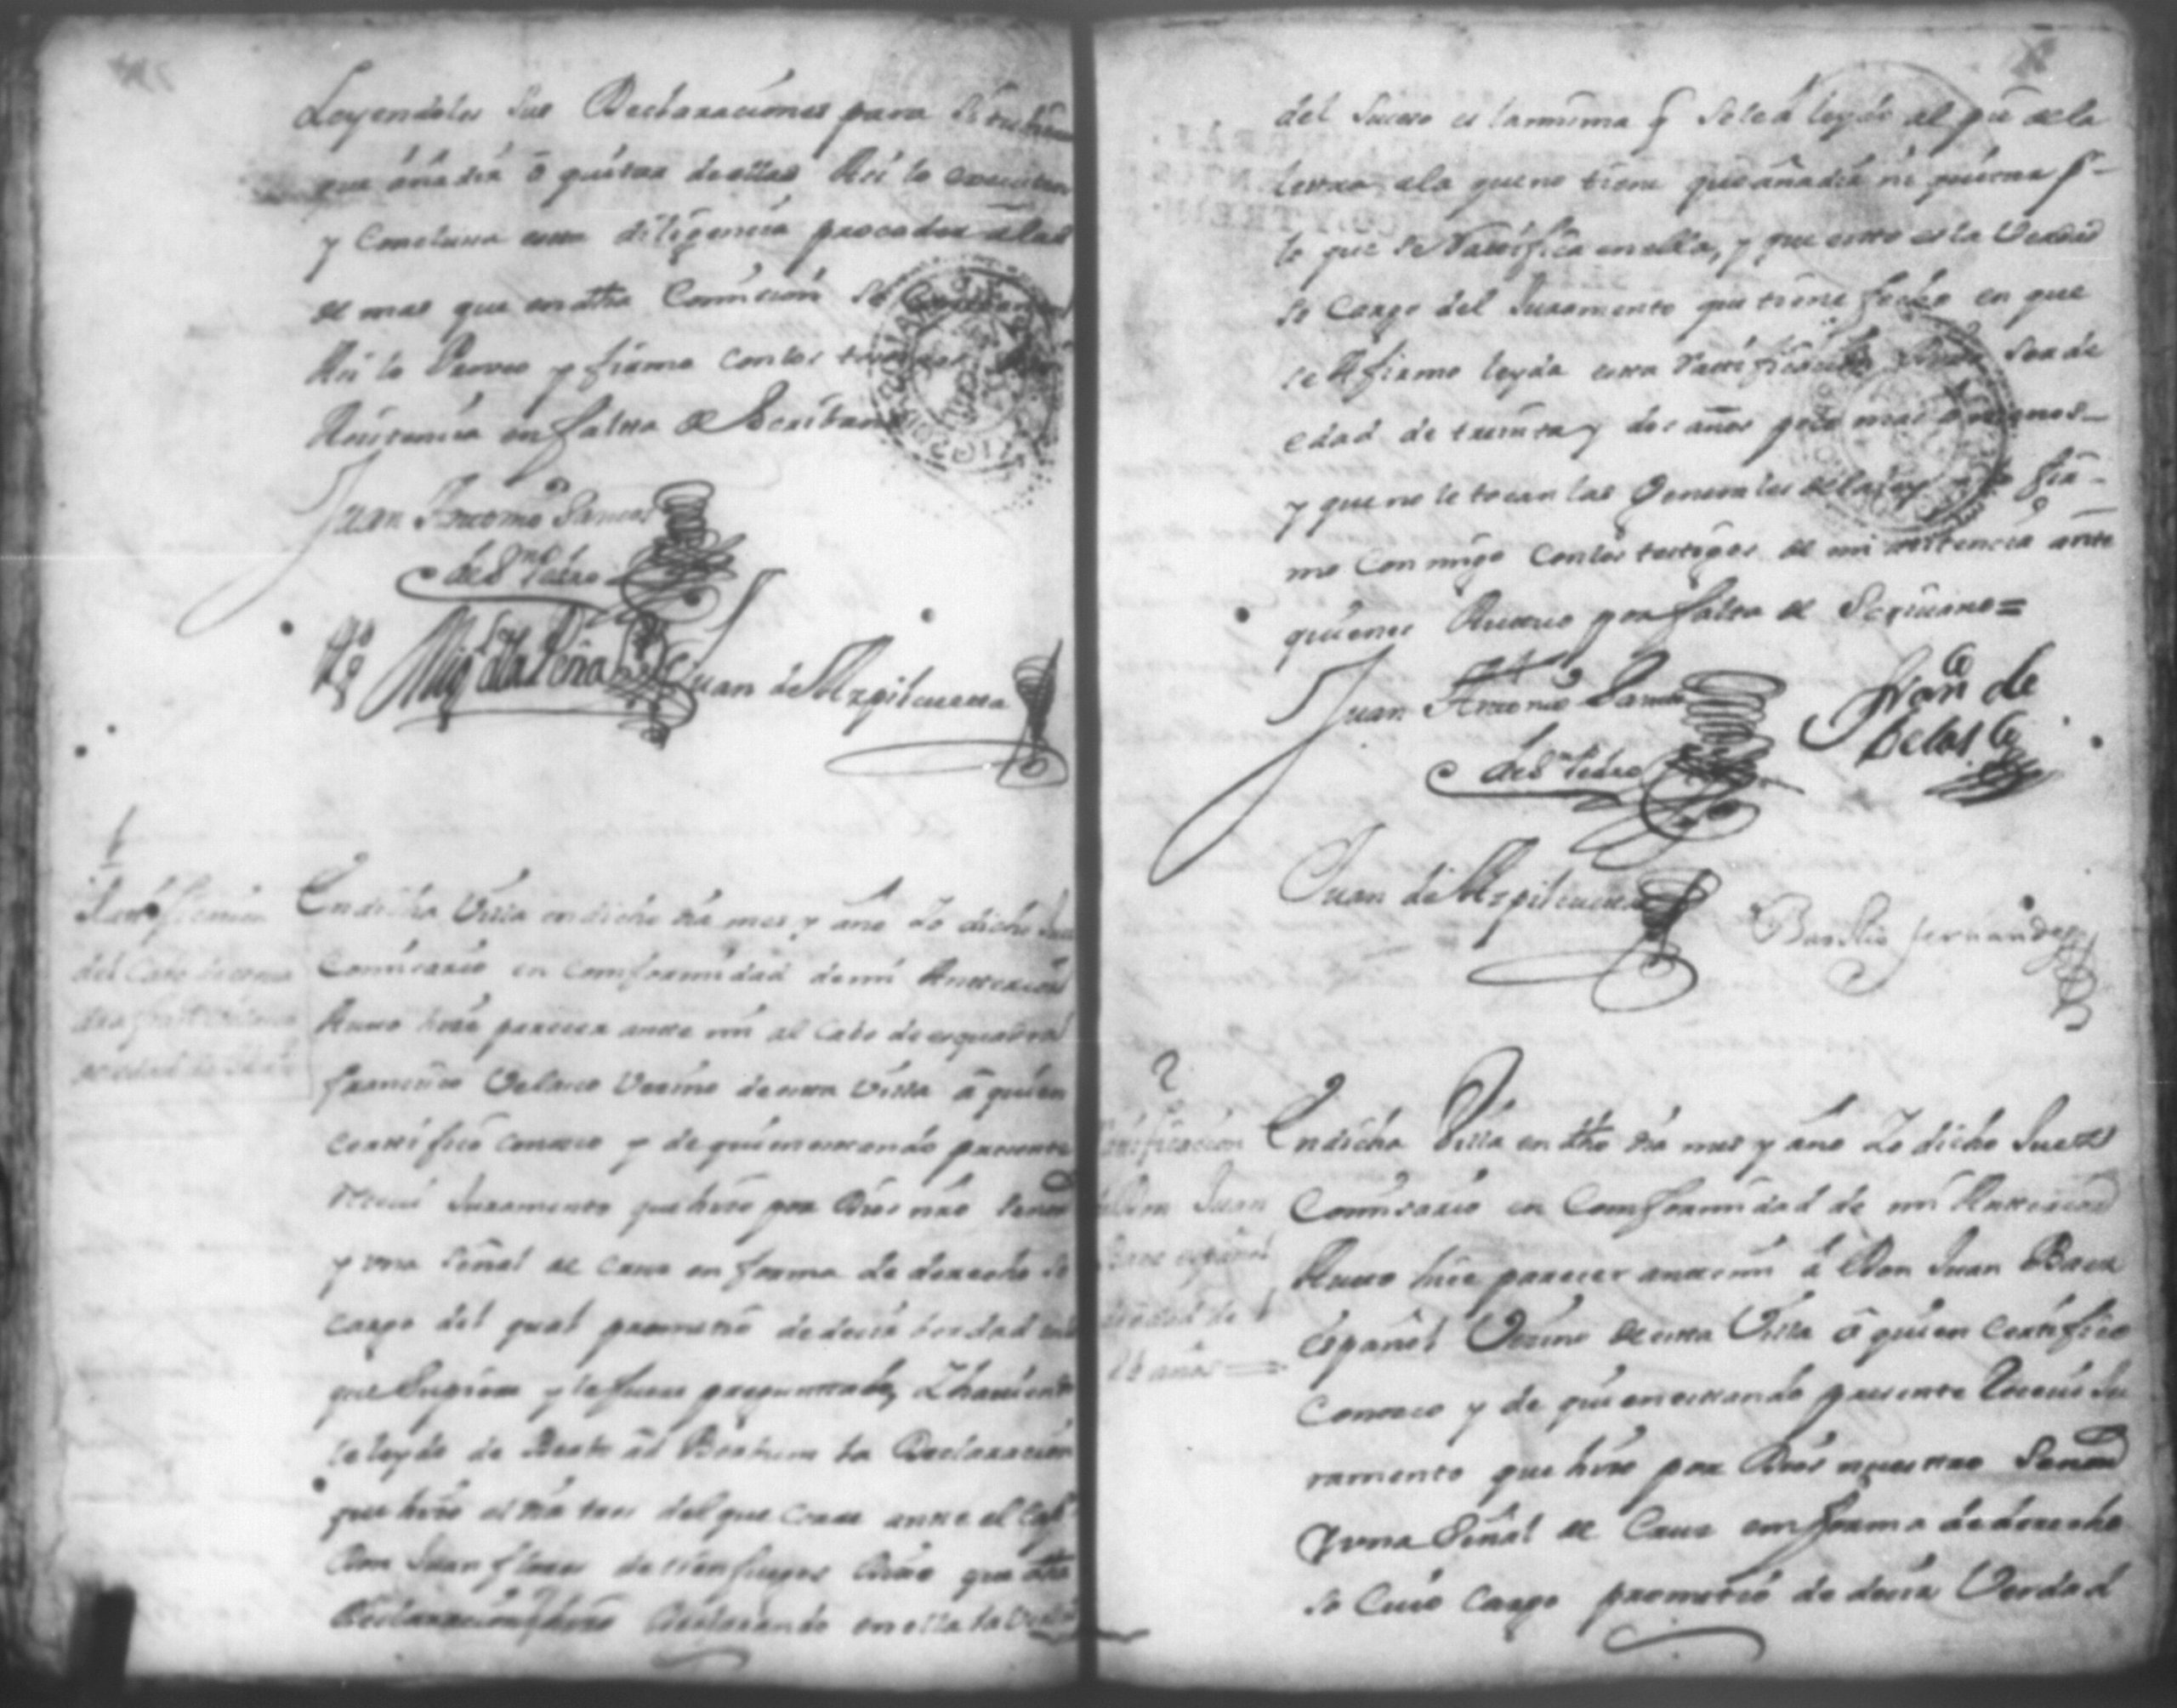 Leyendoles sus Declaraciones para si tubieren
que añadir ô quitar de ellas Asi lo executen
y Conclusa esta diligencia proceder alas
de mas que en dha Comision se
Asi lo Provee y firmo con los testigos
Asistencia en falta de Escribano
Juan Antonio Ramos
de Sn Pedro
Migl de la Peña
Juan de Azpilcueta
1
Ratificacion
del Cabo de esqua
dra franco Velasco
de edad de
En dicha Villa en dicho dia mes y año Yo dicho Juez
Comisario en comformidad de mi Antterior
Autto hize parecer antte mi al Cabo de esquadra
francisco Velasco Vecino de estta Villa â quien
certtifico conosco y de quien esttando presente
Recivi Juramento que hizo por Dios nro Señor
y una Señal de cruz en forma de derecho so
cargo del qual promettio de decir verdad en lo
que Supiere y le fuere preguntado, Y haviendo
le leydo de Berbo ad Berbum la Declaracion
que hizo el dia tres del que corre antte el Capn
Don Juan flores de sienfuegos Dixo que dha
Declaracion hizo Declarando en ella la Verdad
del Suceso es la misma q se le á leydo al pie de la
lettra, ala que no tiene que añadir ni quittar p-
lo que se Ratifica en ella, y que estto es la Verdad
so Cargo del Juramento que tiene fecho en que
se Afirmo leyda estta Rattificacion Ser de
edad de treinta y dos años poco mas ô menos-
y que no le tocan las Generales de la ley y lo fir-
mo Con migo Con los testigos de mi asistencia ante
quienes Actuo por falta de Scrivano=
Juan Antonio Ramos
de Sn Pedro
Franco de
Belasco
Juan de Azpilcueta
Basilio fernandez
2
Ratificacion
de Don Juan
Baez español
de edad de
24 años
En dicha Villa en dho dia mes y año Yo dicho Juez
Comisario en Comformidad de mi Antterior
Autto hize parecer antte mi â Don Juan Baez
español Vecino de estta Villa â quien Certtifico
Conosco y de quien esttando presente Recivi Ju
ramento que hizo por Dios nuesttro Señor
Y una Señal de Cruz en forma de derecho
so Cuio Cargo promettio de decir Verdad